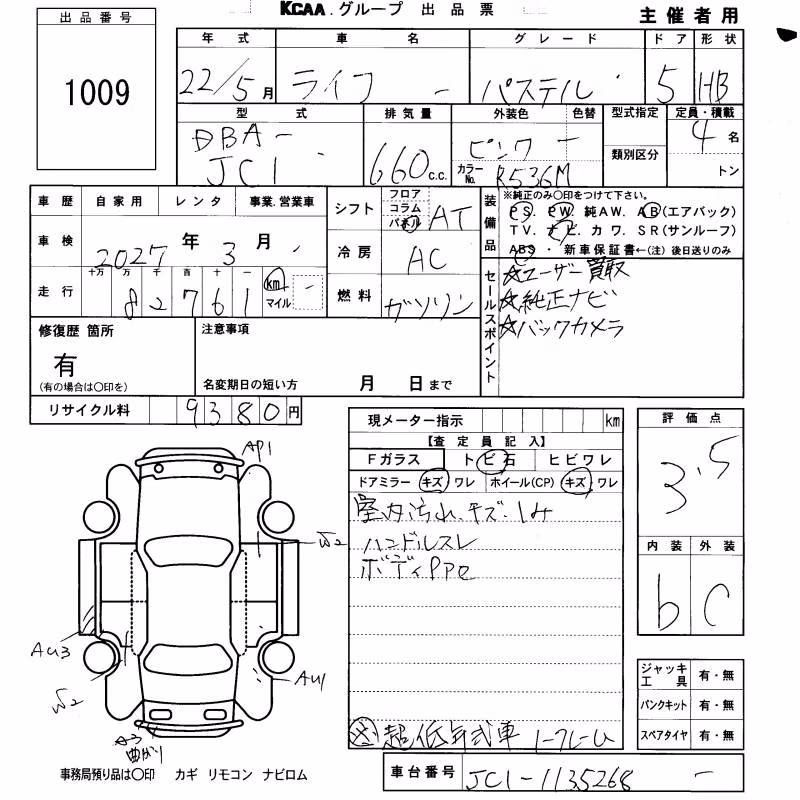 KCAA.グループ 出品票
主催者用
出品番号
1009
年式 車名 グレード ドア 形状
22/5月 ライフ - パステル 5 HB
型式 排気量 外装色 色替 型式指定 定員・積載
DBA- 660c.c. ピンク - 4名
JC1 カラーNo. R536M 類別区分 トン
車歴 自家用 レンタ 事業.営業車
シフト フロア コラム パネル AT
装備品 ※純正のみ○印をつけて下さい。
PS. PW. 純AW. AB(エアバック)
TV. ナビ. カワ. SR(サンルーフ)
ABS ・新車保証書←(注) 後日送りのみ
車検 2027年 3月
冷房 AC
走行 十万 万 千 百 十 一
82761 km マイル -
燃料 ガソリン
セールスポイント
☆ユーザー買取
☆純正ナビ
☆バックカメラ
修復歴 箇所 注意事項
有
(有の場合は○印を) 名変期日の短い方 月 日まで
リサイクル料 9380円
現メーター指示 km
【査定員記入】
Fガラス トビ石 ヒビワレ
ドアミラー キズ ワレ ホイール(CP) キズ ワレ
室内汚れ、キズ・しみ
ハンドルスレ
ボディPPC
評価点
3.5
内装 外装
b C
AP1
W2
AU3
W2
AU1
A3
曲がり
ジャッキ工具 有・無
パンクキット 有・無
スペアタイヤ 有・無
超低年式車 ノークレーム
事務局預り品は○印 カギ リモコン ナビロム
車台番号 JC1-1135268 -